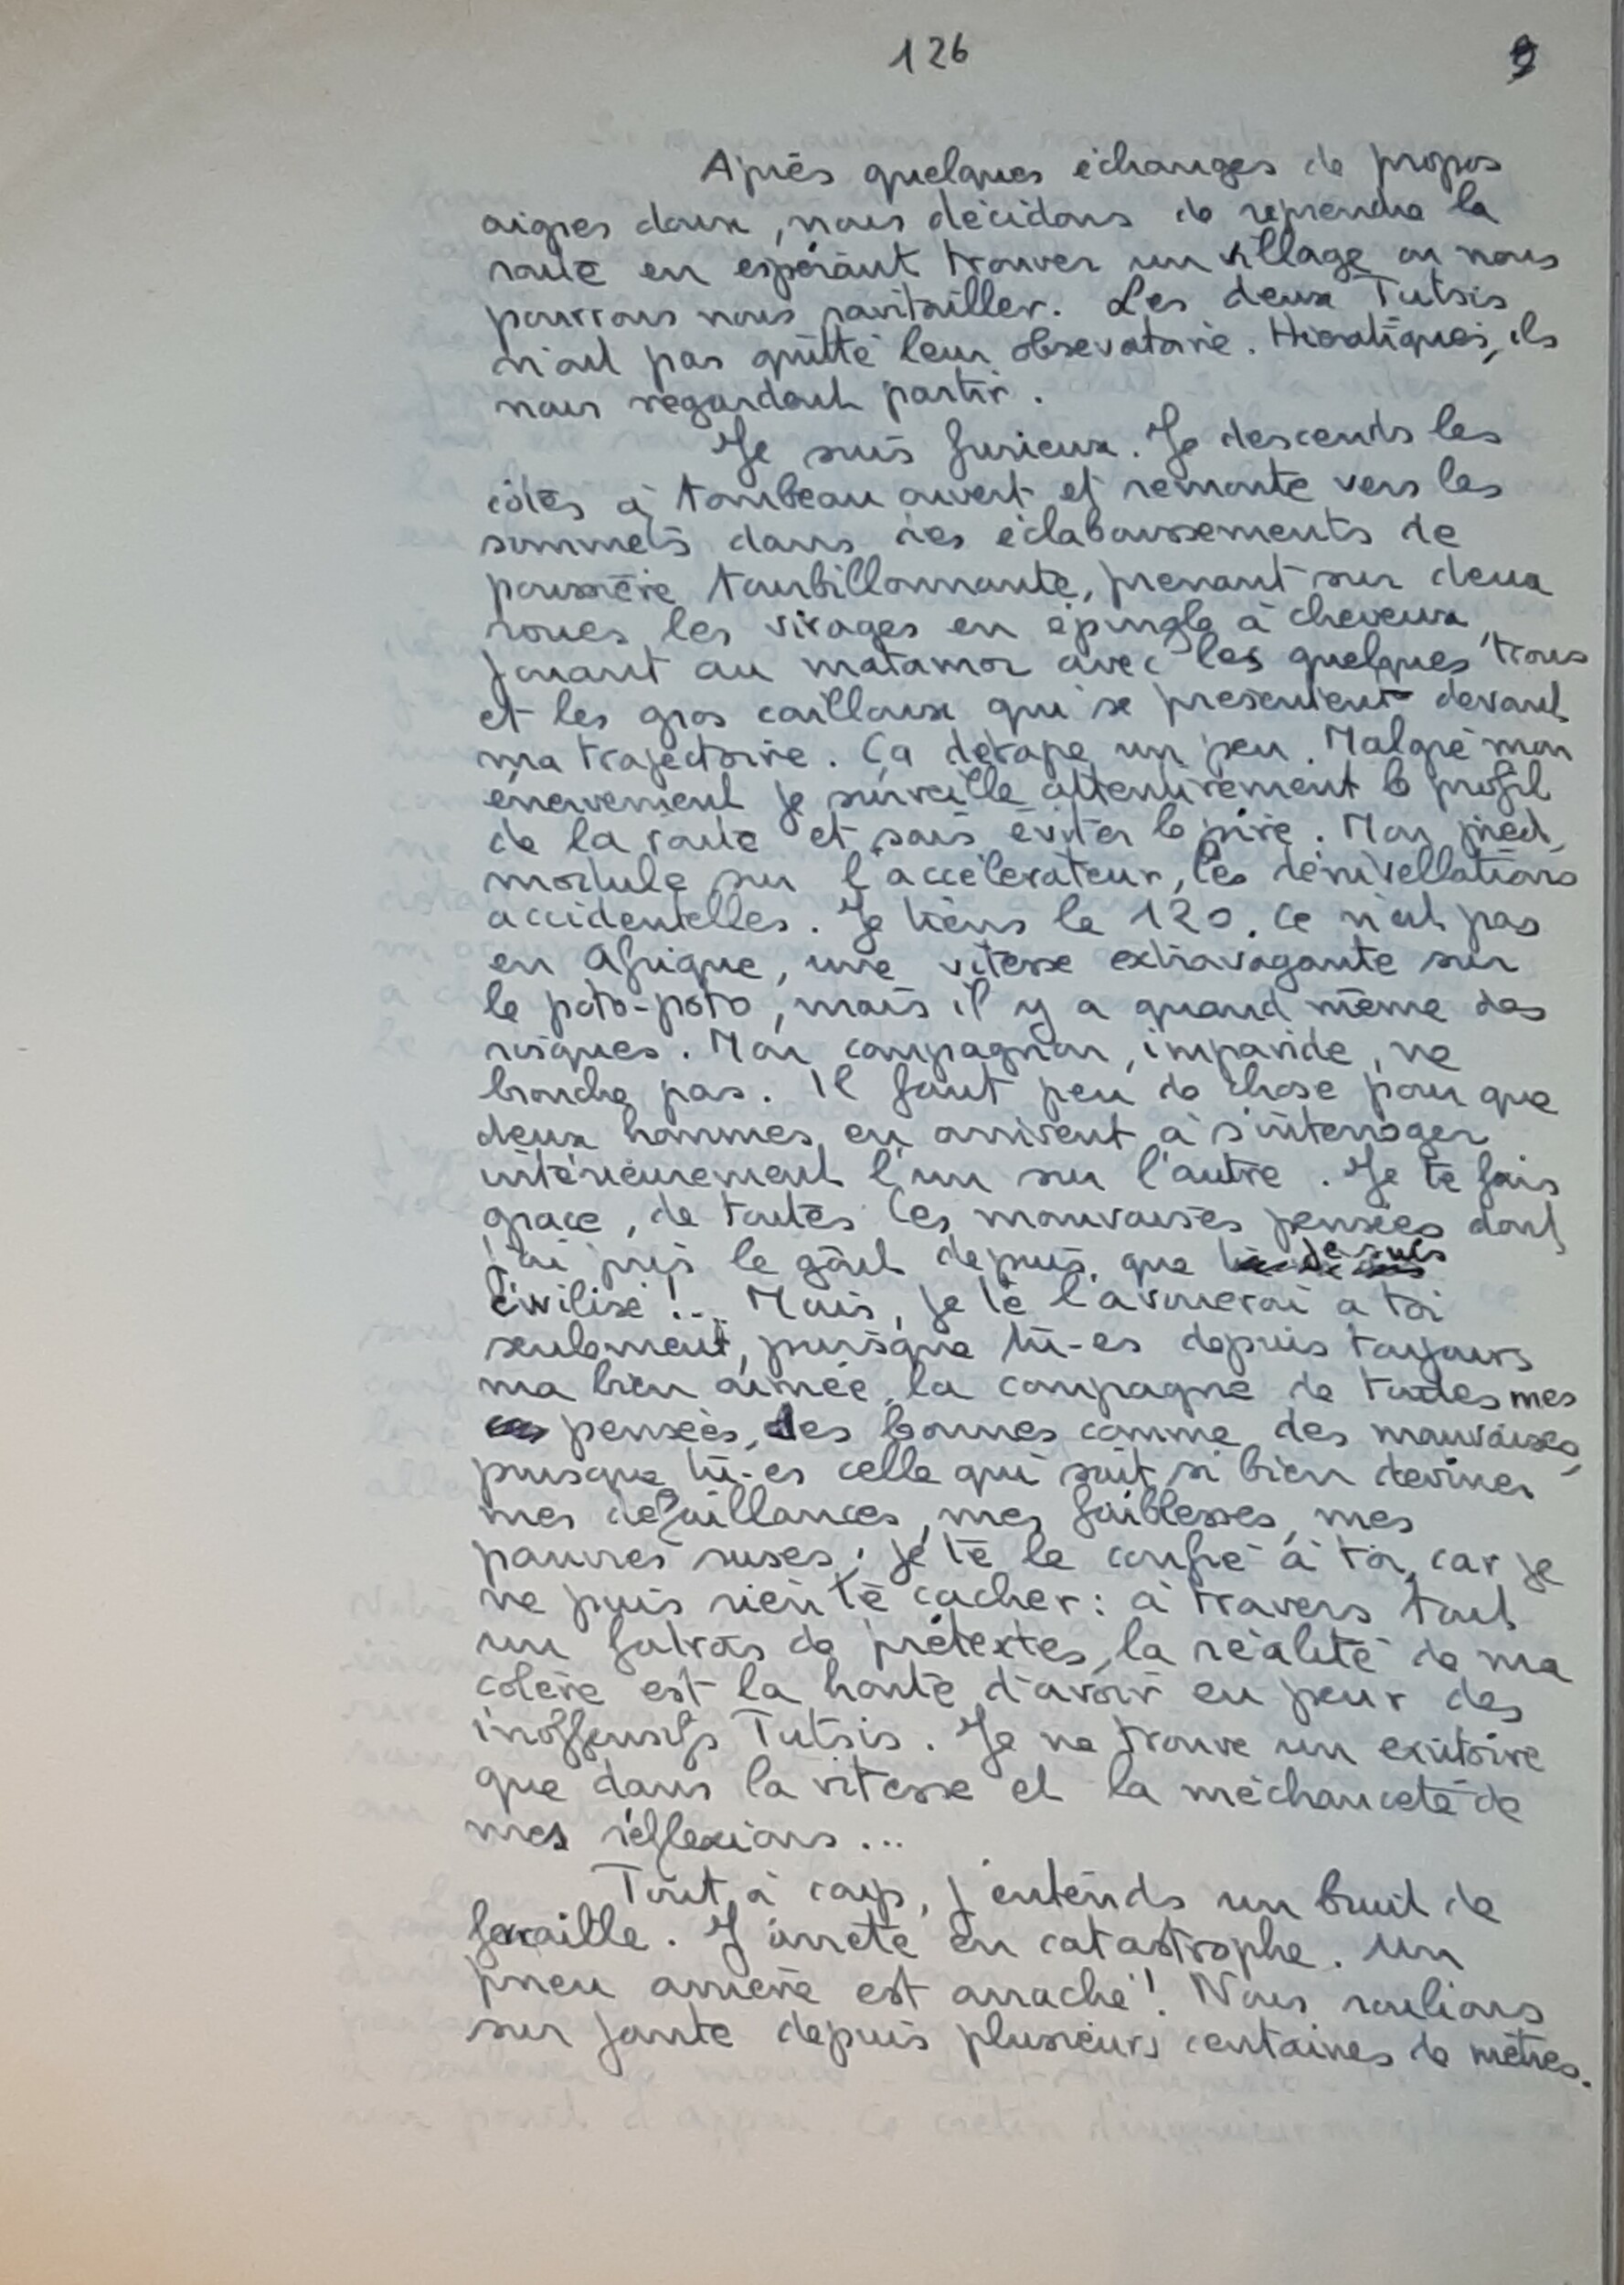 126
9
Après quelques échanges de propos
aigres doux, nous décidons de reprendre la
route en espérant trouver un village ou nous
pourrons nous ravitailler. Les deux Tutsis
n'ont pas quitté leur obsevatoire. Hiératiques, ils
nous regardent partir.
Je suis furieux. Je descends les
côtes à tombeau ouvert et remonte vers les
sommets dans des éclaboussements de
poussière tourbillonnante, prenant sur deux
roues, les virages en épingle à cheveux,
jouant au matamor avec les quelques trous
et les gros cailloux qui se présentent devant
ma trajectoire. Ça dérape un peu. Malgré mon
énervement je surveille attentivement le profil
de la route et sais éviter le pire. Mon pied,
module sur l'accélérateur, les dénivellations
accidentelles. Je tiens le 120. Ce n'est pas
en Afrique, une vitesse extravagante sur
le poto-poto, mais il y a quand même des
risques. Mon compagnon, impavide, ne
bronche pas. Il faut peu de chose pour que
deux hommes en arrivent à s'interroger
intérieurement l'un sur l'autre. Je te fais
grace, de toutes les mauvaises pensées dont
j'ai pris le goût depuis que je suis
civilisé !... Mais, je te l'avouerai à toi
seulement, puisque tu-es depuis toujours
ma bien aimée, la compagne de toutes mes
pensées, des bonnes comme des mauvaises,
puisque tu-es celle qui sait si bien deviner
mes défaillances, mes faiblesses, mes
pauvres ruses; je te le confie à toi, car je
ne puis rien te cacher : à travers tout
un fatras de prétextes, la réalité de ma
colère est la honte d'avoir eu peur des
inoffensifs Tutsis. Je ne trouve un exutoire
que dans la vitesse et la méchanceté de
mes réflexions...
Tout à coup, j'entends un bruit de
ferraille. J'arrête en catastrophe. Un
pneu arrière est arraché ! Nous roulions
sur jante depuis plusieurs centaines de mètres.